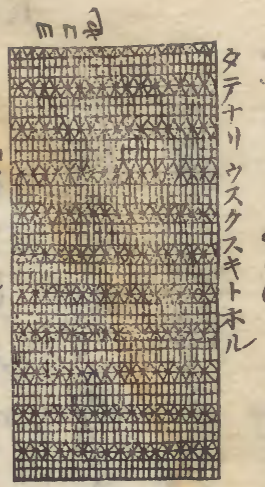 タテナリウスクスキトホル
ヨコ也